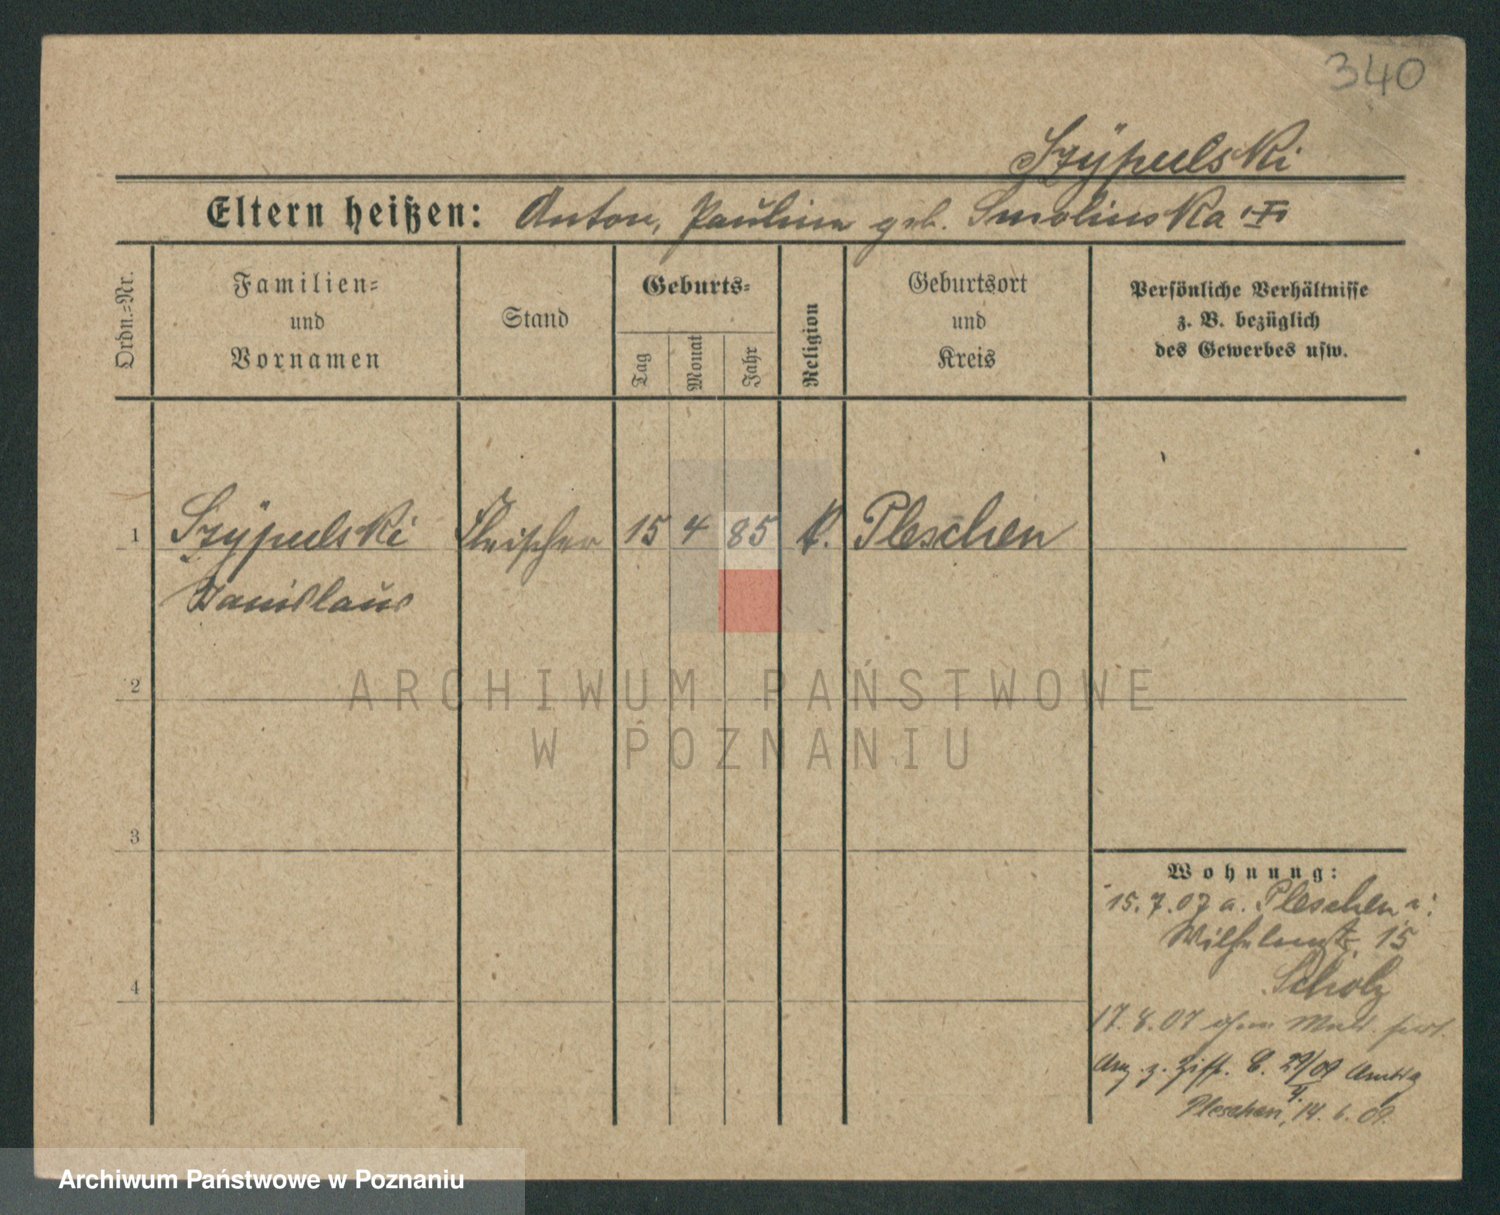 340
Szÿpulski
Eltern heißen: Anton, Paulina geb. Smolinska
Ordn.-Nr.
Familien-
und
Vornamen
Stand
Geburts-
Tag
Monat
Jahr
Religion
Geburtsort
und
Kreis
Persönliche Verhältnisse
z. B. bezüglich
des Gewerbes usw.
1 Szÿpulski Fleischer 15 4 85 k. Pleschen
Stanislaus
2
3
4
Wohnung:
15.7.07 a. Pleschen
Wilhelmstr. 15
Scholz
17.8.07 ohne Meld. fort.
Anz. z. Ziff. 8. 29/4 09
Pleschen, 14.6.09.
ARCHIWUM PAŃSTWOWE
W POZNANIU
Archiwum Państwowe w Poznaniu